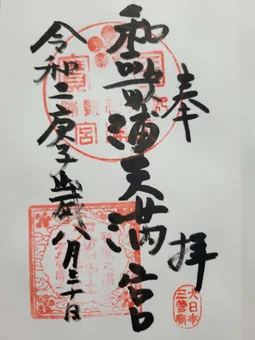 奉拝
大日本
三菅廟
和歌浦天満宮
令和二庚子歳八月三十日